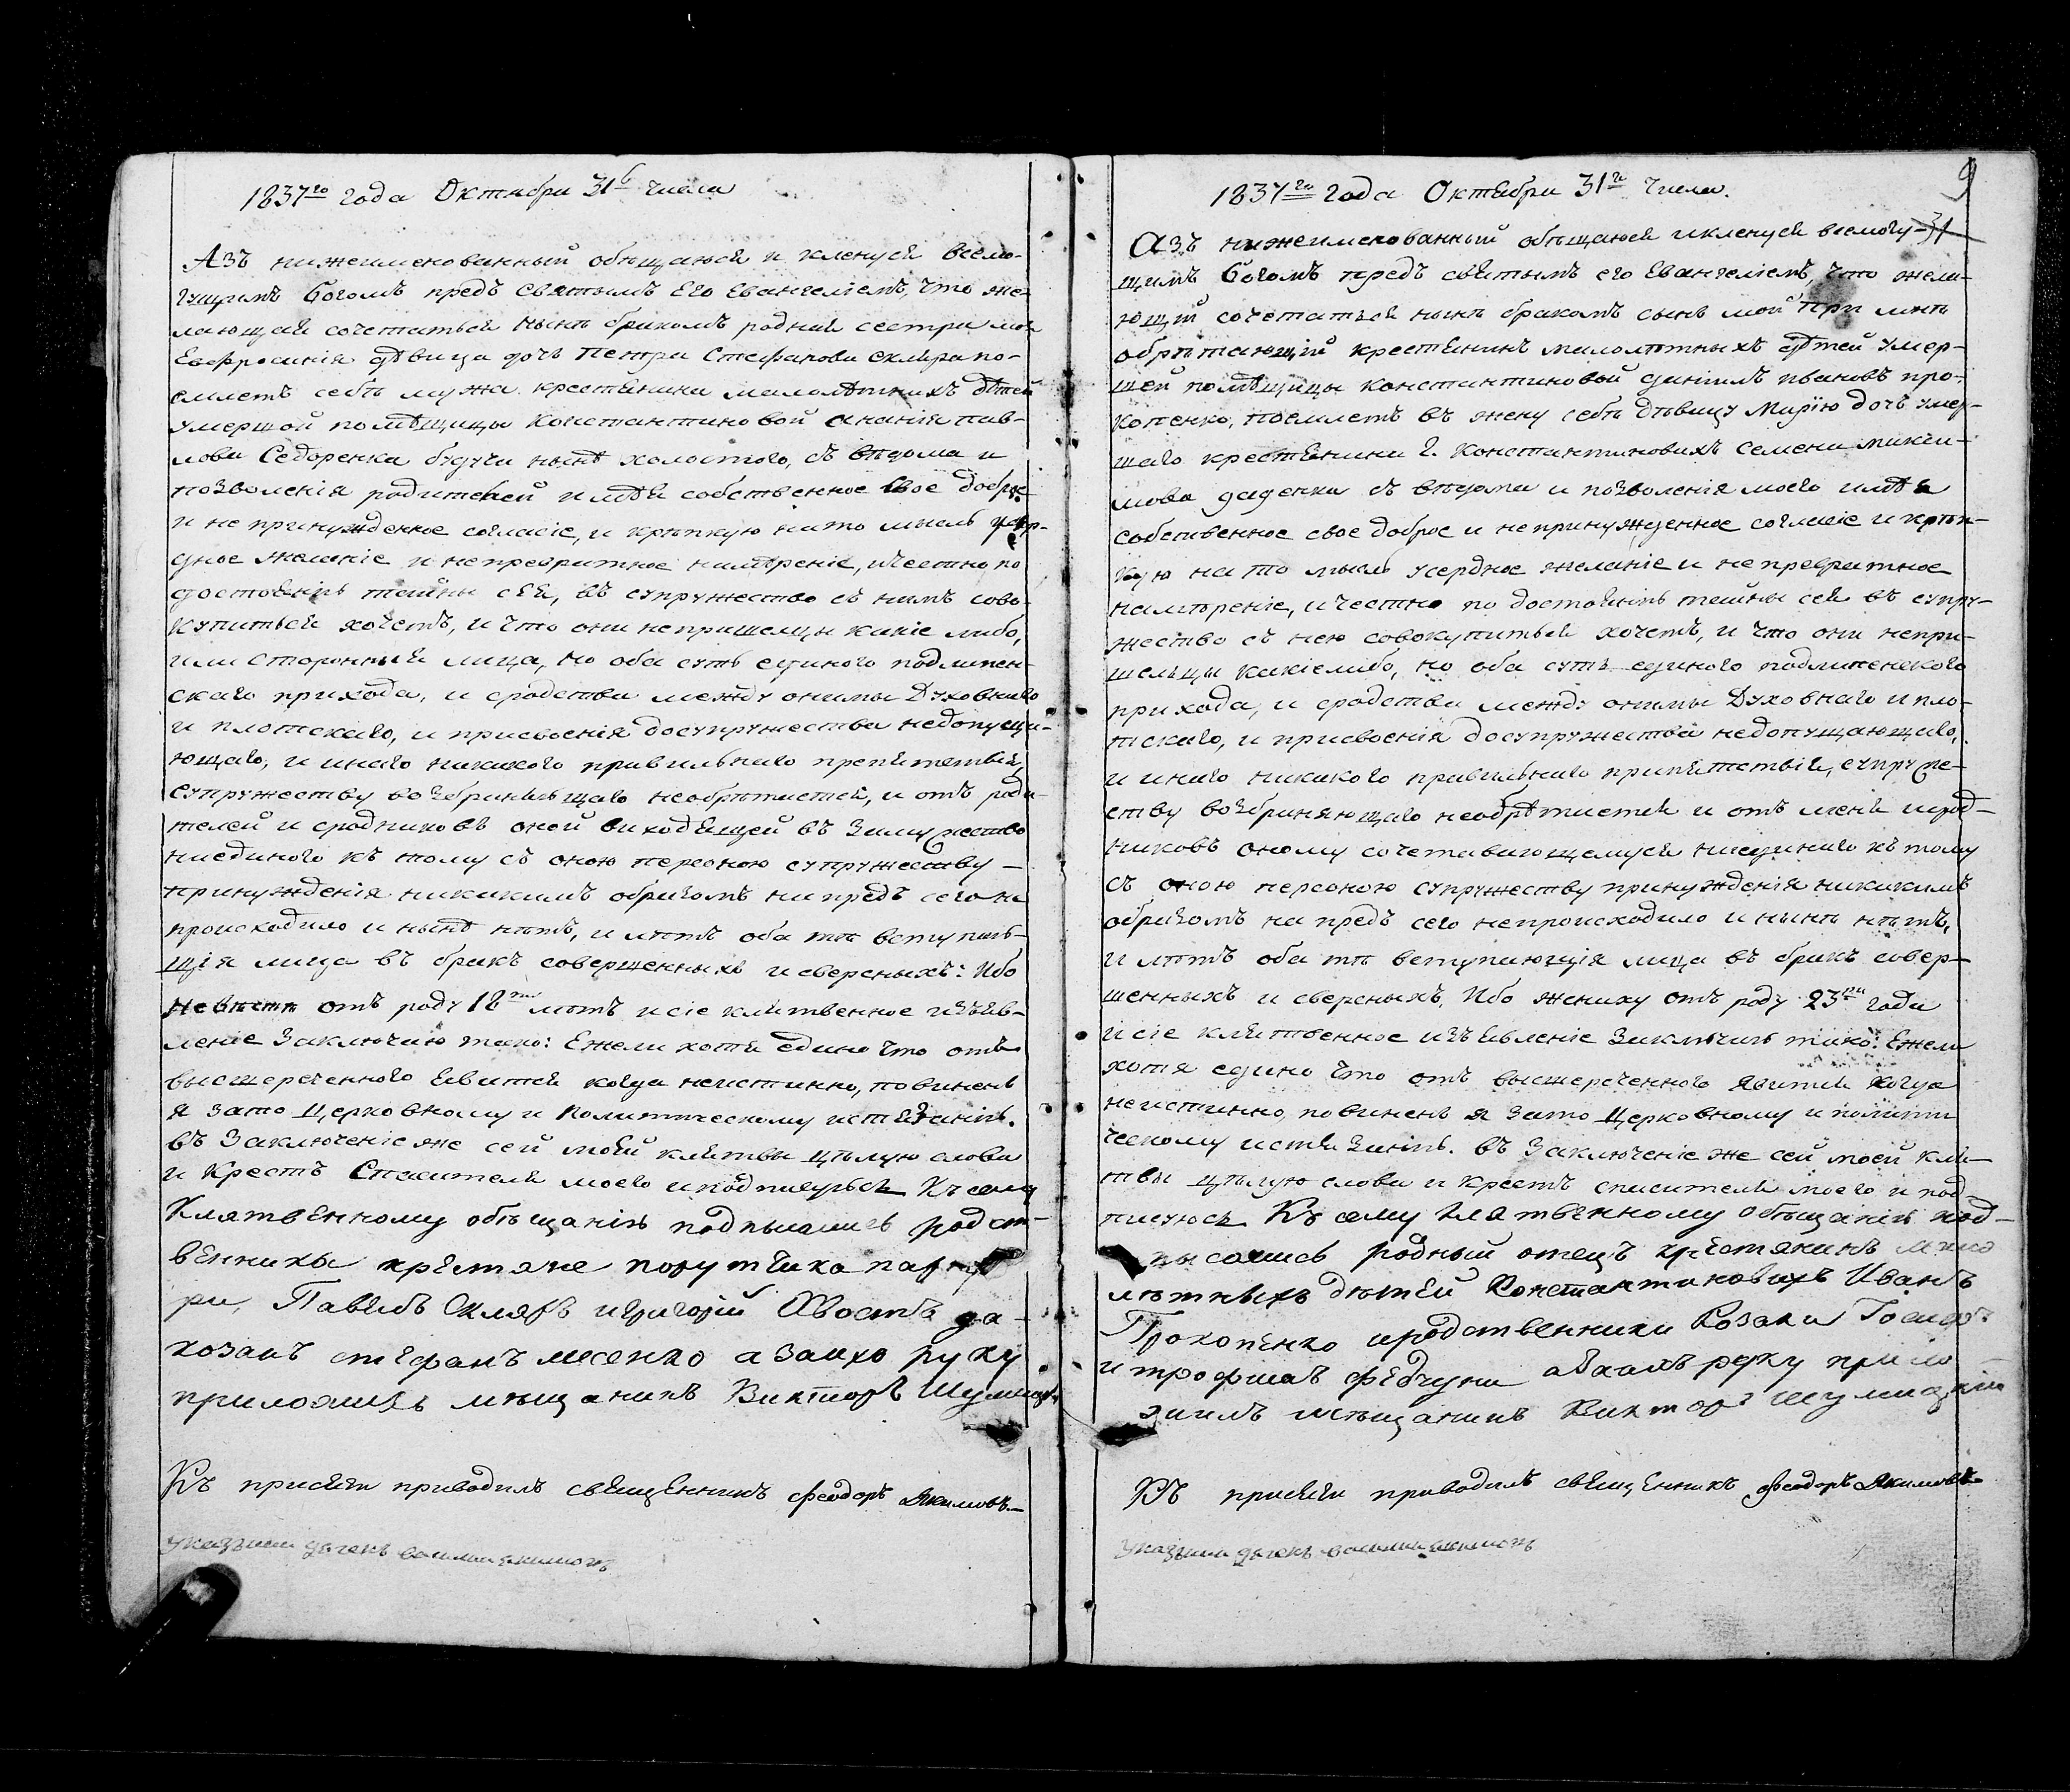 1837го года Октября 31го числа
Азъ нижеименованный обѣщаюся и кленуся всемо-
гущимъ Богомъ предъ святымъ Его Евангеліемъ, что же-
лающая сочетаться нынѣ бракомъ родная сестра моя
Евфросинія дѣвица дочь Петра Стефанова Скляра по-
емлетъ себѣ мужа крестянина малолѣтнихъ дѣтей
умершой помѣщицы Константиновой Ананія Пав-
лова Седоренка будучи нынѣ холостого, съ вѣдома и
позволенія родителей имѣя собственное свое доброе
и не принужденное согласіе, и крѣпкую на то мысль усер-
дное желаніе и непревратное намѣреніе, и честно по
достоянію тайны сея, въ супружество съ нимъ сово-
купиться хочетъ, и что они непришелцы какіе либо,
или сторонныя лица, но оба суть единого подлипен-
скаго прихода, и сродства между оными Духовнаго
и плотскаго, и присвоенія до супружества недопуща-
ющаго, и инаго никакого правильнаго препятствія,
супружеству возбраняющаго необрѣтается, и отъ роди-
телей и сродниковъ оной виходящей въ замужество
ниединого къ тому съ оною персоною супружеству –
принужденія никакимъ образомъ напредъ сего не
происходило и нынѣ нѣтъ, и лѣтъ оба тѣ вступаю-
щія лица въ бракъ совершенныхъ и сверсныхъ: Ибо
невѣстѣ отъ роду 18ть лѣтъ и сіе клятвенное изъяв-
леніе заключаю тако: Ежели хотя едино что отъ
вышереченного явится когда неистинно, повиненъ
я зато Церковному и Политическому истязанію.
въ Заключеніе же сей моей клятвы цѣлую слова
и Крестъ Спасителя моего и подписуюсь Къ сему
Клятвенному обѣщанію подписались родст-
венники крестяне порутчика
ри, Павелъ Скляръ и Григорій Хвостъ да –
козакъ Стефанъ а за ихъ руку
приложилъ мѣщанинъ Викторъ
Къ присяги приводилъ священникъ Феодоръ Якимовъ –
указный дячекъ василій якимовъ
9
1837го года Октября 31го числа.
31
Азъ нижеименованный обѣщаюся и кленуся всемогу-
щимъ Богомъ предъ святымъ его Евангеліемъ, что жела-
ющій сочетатся нынѣ бракомъ сынъ мой при мнѣ
обрѣтающій крестянинъ малолѣтныхъ дѣтей умер-
шей помѣщицы Константиновой Даніилъ Ивановъ Про-
копенко, поемлетъ въ жену себѣ дѣвицу Марію дочь умер-
шаго крестянина г. Константиновихъ Семена Макси-
мова съ вѣдома и позволенія моего имѣя
собственное свое доброе и непринужденное согласіе и крѣп-
кую на то мысль усердное желаніе и непревратное
намѣреніе, и честно по достоянію тайны сея въ супру-
жество съ нею совокупиться хочетъ, и что они непри-
шельцы какіелибо, но оба суть единого подлипенского
прихода, и сродства между оными Духовнаго и пло-
тскаго, и присвоенія до супружества недопущающаго,
и инаго никакого правильнаго припятствія, супруже-
ству возбраняющаго необрѣтается и отъ мене и срод-
никовъ оному сочетавающемуся ниединаго къ тому
съ оною персоною супружеству принужденія никакимъ
образомъ на предъ сего непроисходило и нынѣ нѣтъ,
и лѣтъ оба тѣ вступающія лица въ бракъ совер-
шенныхъ и сверсныхъ, Ибо жениху отъ роду 23ри года
и сіе клятвенное изъявленіе заключаю тако: Ежели
хотя едино что отъ вышереченного явится когда
неистинно, повиненъ я зато Церковному и полити
ческому истязанію. въ Заключеніе же сей моей кля-
твы цѣлую слова и Крестъ спасителя моего и под-
писуюсь Къ сему клятвенному обѣщанію под-
писались родный отецъ крестянинъ мало
лѣтныхъ дѣтей Константиновихъ Иванъ
Прокопенко и родственники Козаки
и Трофимъ Федчуни руку прило
жилъ мѣщанинъ Викторъ
Къ присяги приводилъ священникъ Феодоръ Якимовъ
указный дячекъ василій якимовъ